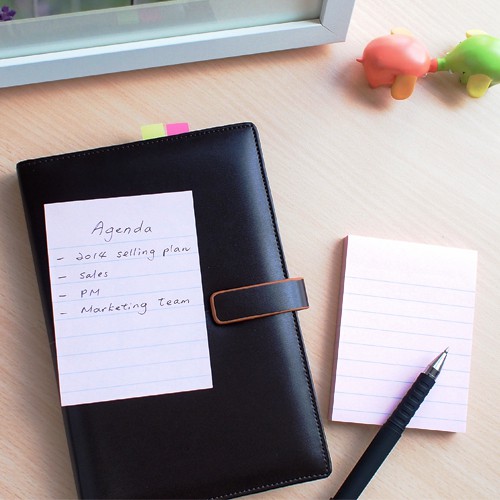 Agenda
- 2014 selling plan
- Sales
- PM
- Marketing team